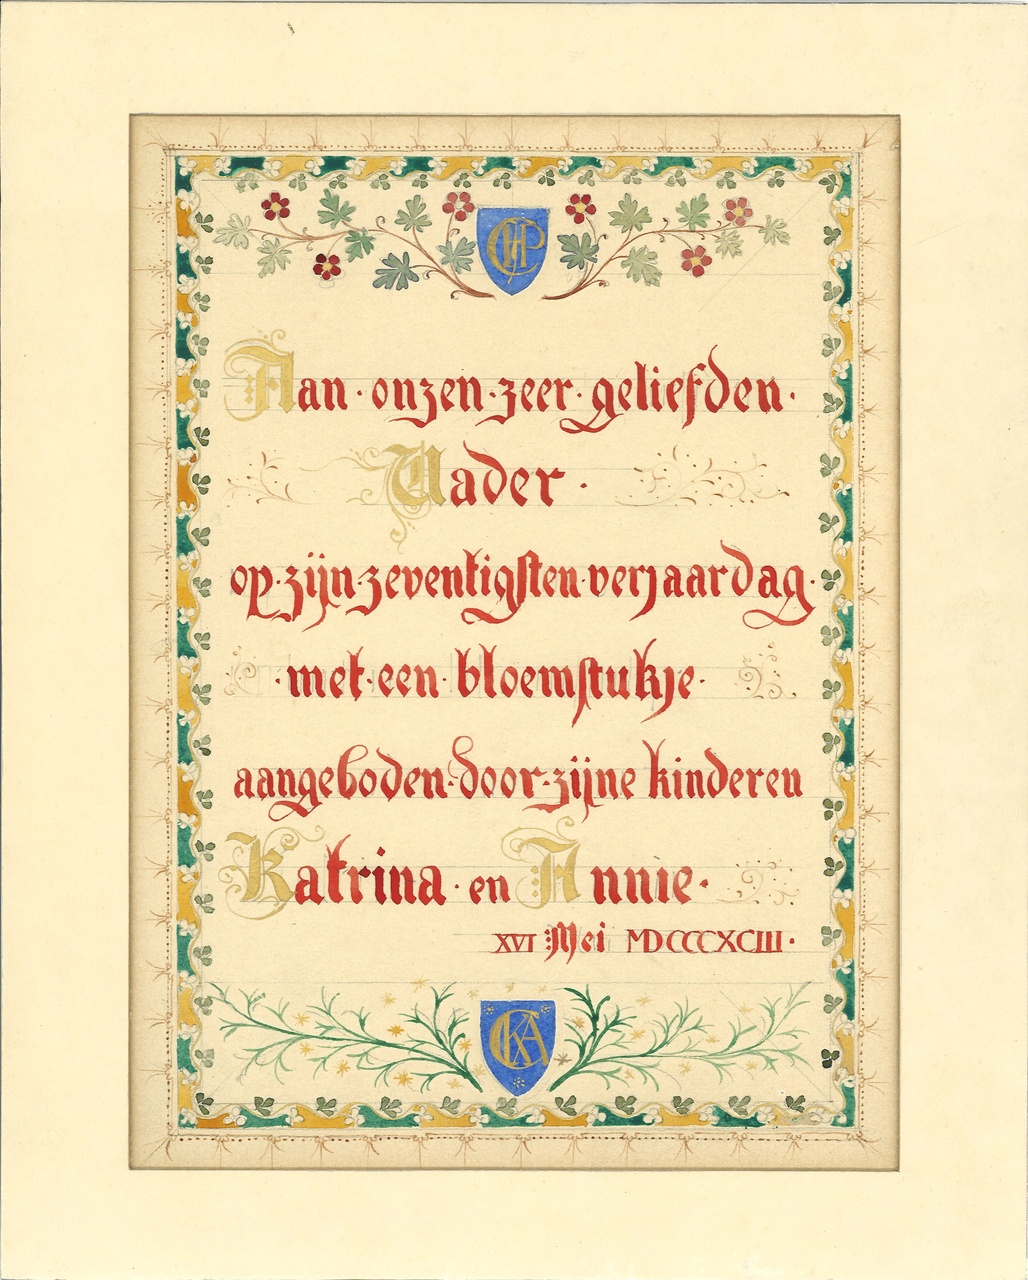 Aan · onzen · zeer · geliefden ·
Vader ·
op · zijn · zeventigsten · verjaardag ·
· met · een · bloemstukje ·
aangeboden · door · zijne kinderen
Katrina · en Annie ·
XVI Mei MDCCCXCIII ·